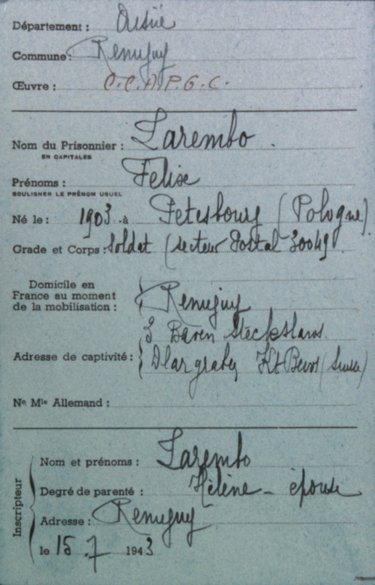 Département :
Commune: Remigny
Œuvre : C.C.A.P.G.C.
Nom du Prisonnier : Zarembo.
EN CAPITALES
Prénoms : Félix
SOULIGNER LE PRÉNOM USUEL
Né le : 1903 à Petesbourg (Pologne).
Grade et Corps : Soldat (secteur Postal 30049
Domicile en
France au moment
de la mobilisation : Remigny
Adresse de captivité : (Suisse)
Nº Mle Allemand :
Inscripteur
Nom et prénoms : Zarembo
Degré de parenté : Hélène - épouse
Adresse : Remigny
le 15 7 1943